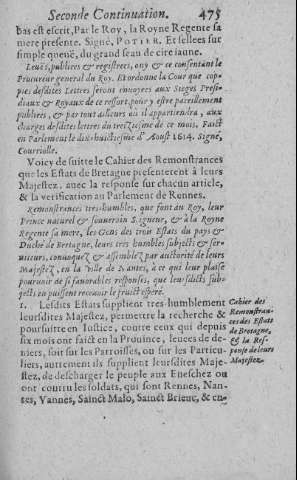 Seconde Continuation. 475
bas est escrit, Par le Roy, la Royne Regente sa
mere presente. Signé, POTIER. Et sellees sur
simple queuë, du grand seau de cire iaune.
Leuës, publiees & registrees, ouy & ce consentant le
Procureur general du Roy. Et ordonne la Cour que cop-
pies desdites Lettres seront enuoyees aux Sieges Presi-
diaux & Royaux de ce ressort, pour y estre pareillement
publiees, & par tout ailleurs où il appartiendra, aux
charges desdites lettres du treziesme de ce mois. Faict
en Parlement le dix-huictiesme d'Aoust 1614. Signé,
Courtiolle.
Voicy de suitte le Cahier des Remonstrances
que les Estats de Bretagne presenterent à leurs
Majestez, auec la response sur chacun article,
& la verification au Parlement de Rennes.
Remonstrances tres-humbles, que font au Roy, leur
Prince naturel & souuerain Seigneur, & à la Royne
Regente sa mere, les Gens des trois Estats du pays &
Duché de Bretagne, leurs tres humbles subjects & ser-
uiteurs, conuoquez & assemblez par authorité de leurs
Majestez, en la ville de Nantes, à ce qui leur plaise
pouruoir de si fauorables responses, que leursdicts sub-
jects en puissent receuoir le fruict esperé.
1. Lesdits Estats supplient tres-humblement
leursdites Majestez, permettre la recherche &
poursuitte en Iustice, contre ceux qui depuis
six mois ont faict en la Prouince, leuees de de-
niers, soit sur les Parroisses, ou sur les Particu-
liers, autrement ils supplient leursdites Maje-
stez, de descharger le peuple aux Eueschez ou
ont couru les soldats, qui sont Rennes, Nan-
tes, Vannes, Sainct Malo, Sainct Brieuc, & en-
Cahier des
Remonstran-
ces des Estats
de Bretagne,
& la Res-
ponse de leurs
Majestez.